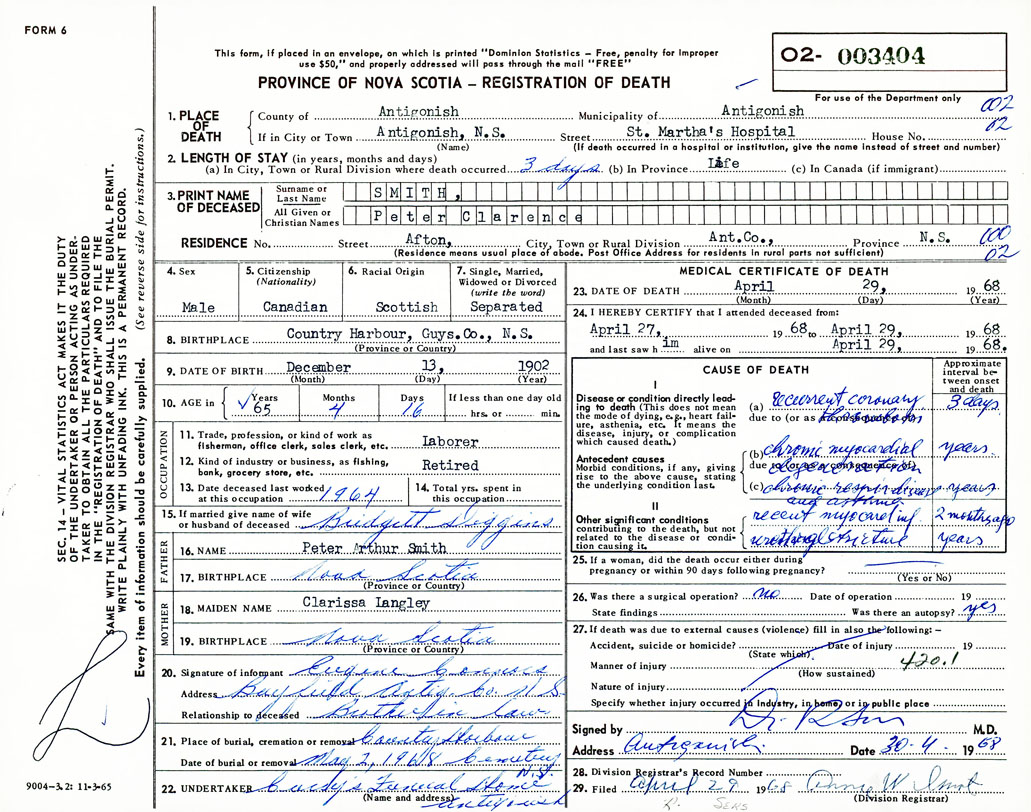 FORM 6
This form, if placed in an envelope, on which is printed "Dominion Statistics – Free, penalty for improper
use $50," and properly addressed will pass through the mail "FREE"
PROVINCE OF NOVA SCOTIA – REGISTRATION OF DEATH
02- 003404
For use of the Department only
002
02
1. PLACE OF DEATH
County of Antigonish Municipality of Antigonish
If in City or Town Antigonish, N.S. Street St. Martha's Hospital House No.
(Name) (If death occurred in a hospital or institution, give the name instead of street and number)
2. LENGTH OF STAY (in years, months and days)
(a) In City, Town or Rural Division where death occurred 3 days (b) In Province Life (c) In Canada (if immigrant)
3. PRINT NAME OF DECEASED
Surname or Last Name SMITH,
All Given or Christian Names Peter Clarence
RESIDENCE No. Street Afton, City, Town or Rural Division Ant.Co., Province N.S.
(Residence means usual place of abode. Post Office Address for residents in rural parts not sufficient)
100
02
4. Sex Male
5. Citizenship (Nationality) Canadian
6. Racial Origin Scottish
7. Single, Married, Widowed or Divorced (write the word) Separated
8. BIRTHPLACE Country Harbour, Guys.Co., N.S.
(Province or Country)
9. DATE OF BIRTH December 13, 1902
(Month) (Day) (Year)
10. AGE in Years 65 Months 4 Days 16 If less than one day old hrs. or min.
OCCUPATION
11. Trade, profession, or kind of work as fisherman, office clerk, sales clerk, etc. Laborer
12. Kind of industry or business, as fishing, bank, grocery store, etc. Retired
13. Date deceased last worked at this occupation 1964
14. Total yrs. spent in this occupation
15. If married give name of wife or husband of deceased
FATHER
16. NAME Peter Arthur Smith
17. BIRTHPLACE Nova Scotia
(Province or Country)
MOTHER
18. MAIDEN NAME Clarissa Langley
19. BIRTHPLACE Nova Scotia
(Province or Country)
20. Signature of informant Eugene
Address Bayfield Antig. Co. N.S.
Relationship to deceased Brother in law
21. Place of burial, cremation or removal County Harbour
Date of burial or removal May 2, 1968 Cemetery
N.S.
22. UNDERTAKER Curry's Funeral Home
(Name and address) Antigonish
MEDICAL CERTIFICATE OF DEATH
23. DATE OF DEATH April 29, 1968
(Month) (Day) (Year)
24. I HEREBY CERTIFY that I attended deceased from:
April 27, 1968 to April 29, 1968
and last saw him alive on April 29, 1968.
CAUSE OF DEATH
Approximate interval between onset and death
I
Disease or condition directly leading to death (This does not mean the mode of dying, e.g., heart failure, asthenia, etc. It means the disease, injury, or complication which caused death.)
(a) recurrent coronary 3 days
due to (or as thrombosis
Antecedent causes
Morbid conditions, if any, giving rise to the above cause, stating the underlying condition last.
(b) chronic myocardial years
due to (or as a consequence of)
(c) chronic respir disease years
and asthma
II
Other significant conditions contributing to the death, but not related to the disease or condition causing it.
recent myocardial inf. 2 months ago
urethral stricture years
25. If a woman, did the death occur either during
pregnancy or within 90 days following pregnancy?
(Yes or No)
26. Was there a surgical operation? no Date of operation 19
State findings Was there an autopsy? yes
27. If death was due to external causes (violence) fill in also the following: –
Accident, suicide or homicide? Date of injury 19
(State which)
Manner of injury 420.1
(How sustained)
Nature of injury
Specify whether injury occurred in industry, in home, or in public place
Signed by M.D.
Address Antigonish Date 30-4- 1968
28. Division Registrar's Record Number
29. Filed April 29 1968
(Division Registrar)
SEC. 14 – VITAL STATISTICS ACT MAKES IT THE DUTY
OF THE UNDERTAKER OR PERSON ACTING AS UNDER-
TAKER TO OBTAIN ALL THE PARTICULARS REQUIRED
IN THE "REGISTRATION OF DEATH" AND TO FILE THE
SAME WITH THE DIVISION REGISTRAR WHO SHALL ISSUE THE BURIAL PERMIT.
WRITE PLAINLY WITH UNFADING INK. THIS IS A PERMANENT RECORD.
Every item of information should be carefully supplied. (See reverse side for instructions.)
9004-3.2: 11-3-65